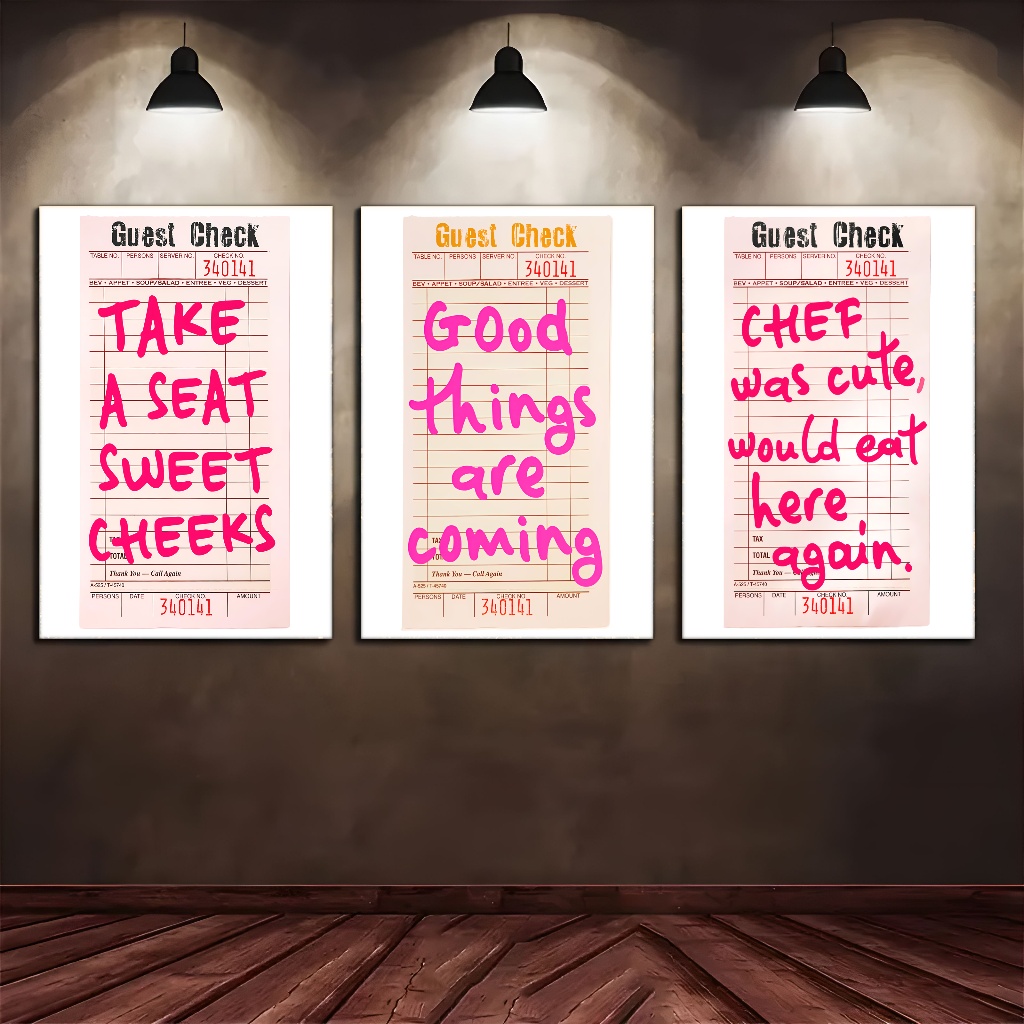 Guest Check
TABLE NO. PERSONS SERVER NO. CHECK NO.
340141
BEV • APPET • SOUP/SALAD • ENTREE • VEG • DESSERT
TAKE
A SEAT
SWEET
CHEEKS
TAX
TOTAL
Thank You — Call Again
A-525 / T-45740
PERSONS DATE CHECK NO. AMOUNT
340141
Guest Check
TABLE NO. PERSONS SERVER NO. CHECK NO.
340141
BEV • APPET • SOUP/SALAD • ENTREE • VEG • DESSERT
Good
things
are
coming
TAX
TOTAL
Thank You — Call Again
A-525 / T-45740
PERSONS DATE CHECK NO. AMOUNT
340141
Guest Check
TABLE NO. PERSONS SERVER NO. CHECK NO.
340141
BEV • APPET • SOUP/SALAD • ENTREE • VEG • DESSERT
CHEF
was cute,
would eat
here,
again.
TAX
TOTAL
Thank You —
A-525 / T-45740
PERSONS DATE CHECK NO. AMOUNT
340141